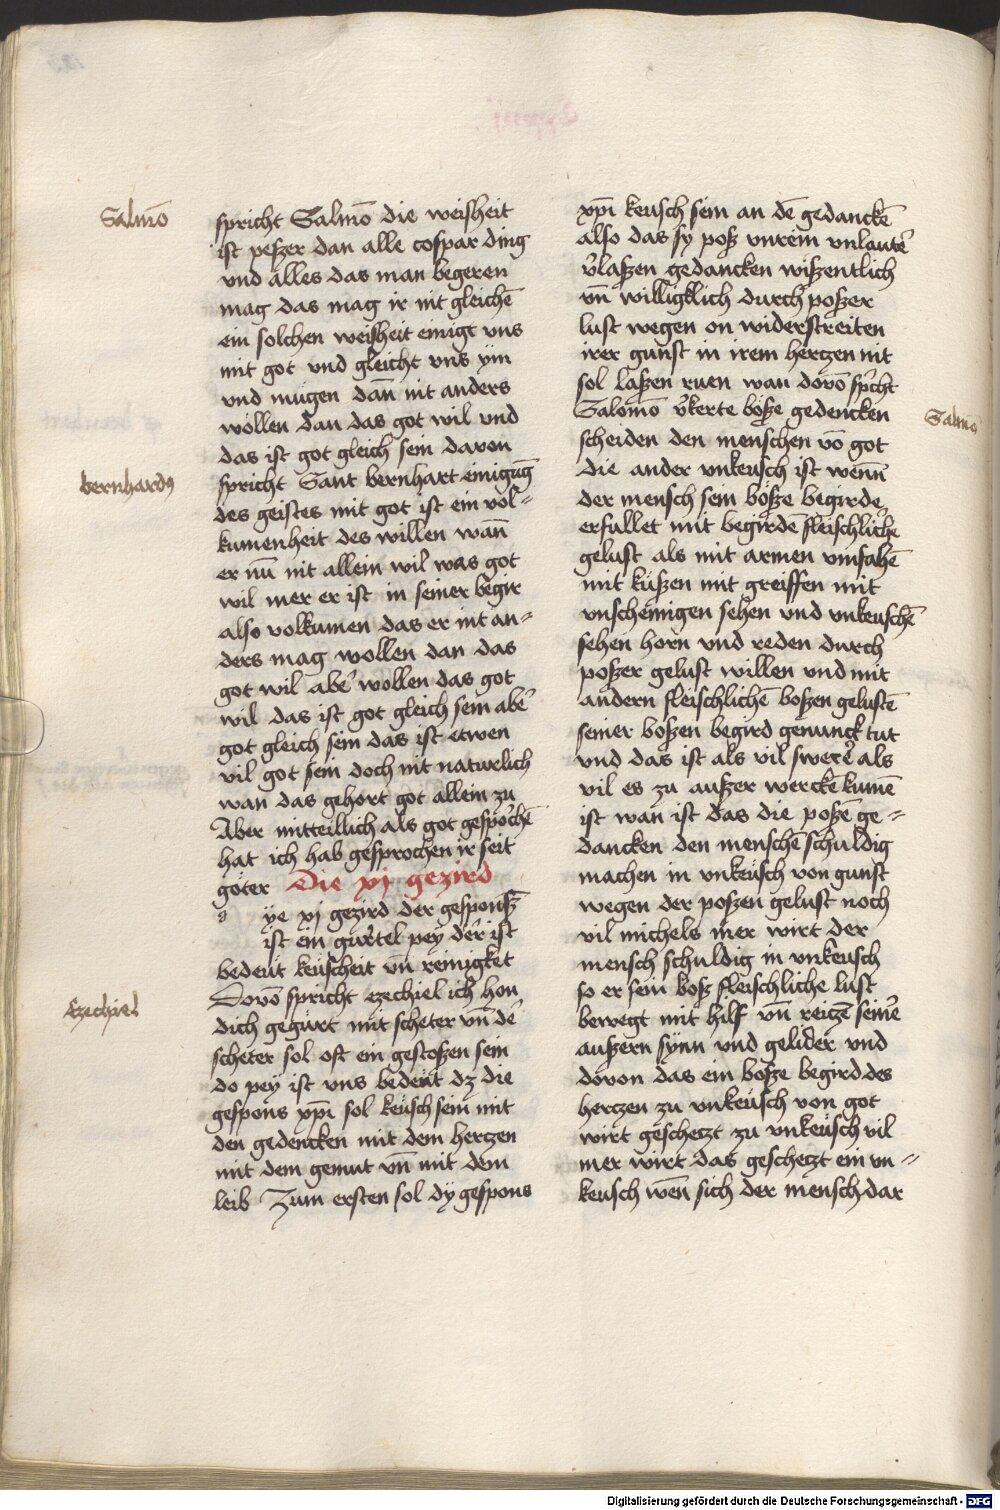 Salmō
spricht Salmō die weisheit
ist peszer dan alle cospar ding
vnd alles das man begeren
mag das mag ir nit gleichē
ein solchen weisheit einigt vns
mit got vnd gleicht vns ym
vnd mügen dañ nit anders
wöllen dan das got wil vnd
das ist got gleich sein dauon
bernhardꝰ
spricht Sant bernhart einigūg
des geistes mit got ist ein vol⸗
kumenheit des willen wañ
er nū nit allein wil was got
wil mer er ist in seiner begir
also volkumen das er nit an⸗
ders mag wollen dan das
got wil abeʼ wollen das got
wil das ist got gleich sein abeʼ
got gleich sein das ist etwen
vil got sein doch nit naturlich
wan das gehort got allein zu
Aber mitteillich als got gesp̄ochē
hat ich hab gesprochen ir seit
göter Die xj gezird
d ye xj gezird der gesponsz
ist ein gürtel pey deʼr ist
bedeüt keüscheit vñ reinigket
Ezechiel
Dovō spricht ezechiel ich hon
dich gegürt mit scheter vñ deʼ
scheter sol oft ein gestoszen sein
do pey ist vns bedeüt dz die
gespons xp̄i sol keüsch sein mit
den gedencken mit dem hertzen
mit dem gemüt vñ mit dem
leib Zum ersten sol dy gespons
xp̄i keusch sein an dē gedanckē
also das sy posz vnrein vnlauteʼ
v̓laszen gedancken wiszentlich
vñ willigklich durch poszer
lust wegen on widerstreiten
irer gunst in irem hertzen nit
sol laszen ruen wan dovō sp̓cht
Salomō v̓kerte bösze gedencken
Salmō
scheiden den menschen vō got
die ander vnkeusch ist wenn
der mensch sein bösze begirde
erfullet mit begirdē fleischlicheʼ
gelust als mit armen vmfahē
mit küszen mit greiffen mit
vnschemigen sehen vnd vnkeuschē
sehen horn vnd reden durch
poszer gelust willen vnd mit
andern fleischlichē boszen gelustē
seiner boszen begird genunck tut
vnd das ist als vil swereʼ als
vil es zu auszer werckē kumē
ist wan ist das die poszē ge⸗
dancken den menschē schuldig
machen in vnkeüsch von gunst
wegen der poszen gelust noch
vil michels mer wirt der
mensch schuldig in vnkeusch
so er sein bosz fleischliche lust
bewegt mit hilf vñ reiczē seineʼ
auszern synn vnd gelider vnd
dovon das ein bosze begird des
hertzen zu vnkeüsch von got
wirt geschetzt zu vnkeüsch vil
mer wirt das geschetzt ein vn⸗
keusch wen̄ sich der mensch dar
Digitalisierung gefördert durch die Deutsche Forschungsgemeinschaft - DFG